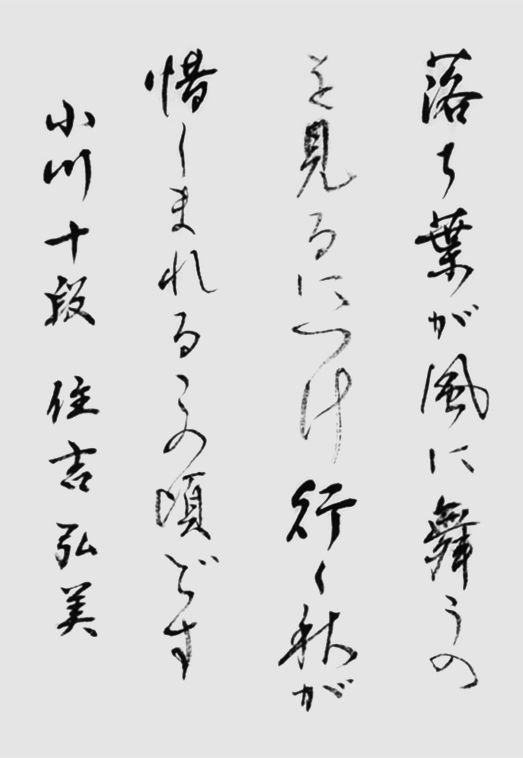 落ち葉が風に舞うの
を見るにつけ行く秋が
惜しまれるこの頃です
小川十段 住吉弘美